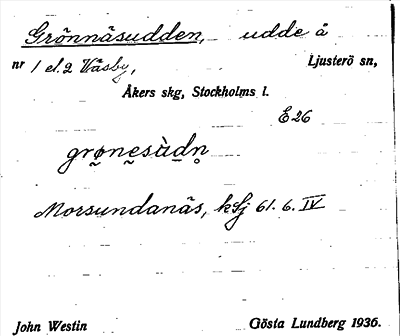 Grönnäsudden, udde å
nr 1 el. 2 Väsby, Ljusterö sn,
Åkers skg, Stockholms l.
E26
grø̬ne̬sàdn̥
Morsundanäs, kSj 61. 6. IV
John Westin Gösta Lundberg 1936.